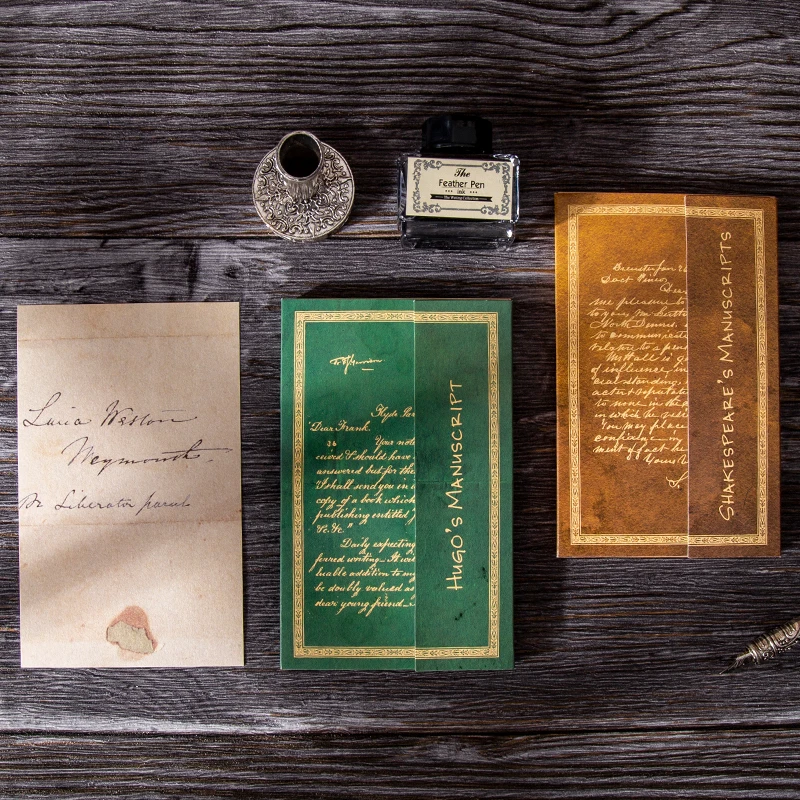 The
Feather Pen
ink
Lucia Weston
Weymouth
Pr Liberator parcel
Hyp
Dear Frank.
36 Your note
ceived & should have
answered but for the
I shall send you in
copy of a book which
publishing entitled
&c. &c"
Daily expecting
ferred writing— It wi
luable addition to my
be doubly valued as
dear young friend—
HUGO'S MANUSCRIPT
Dear
me pleasure to
North Dennis.
to communicate
relative to a
Mr Hall is a
of influence in
cial standing,
to none in the
in which he resi
You may place
confidence in my
ment of fact be
Yours
SHAKESPEARE'S MANUSCRIPTS